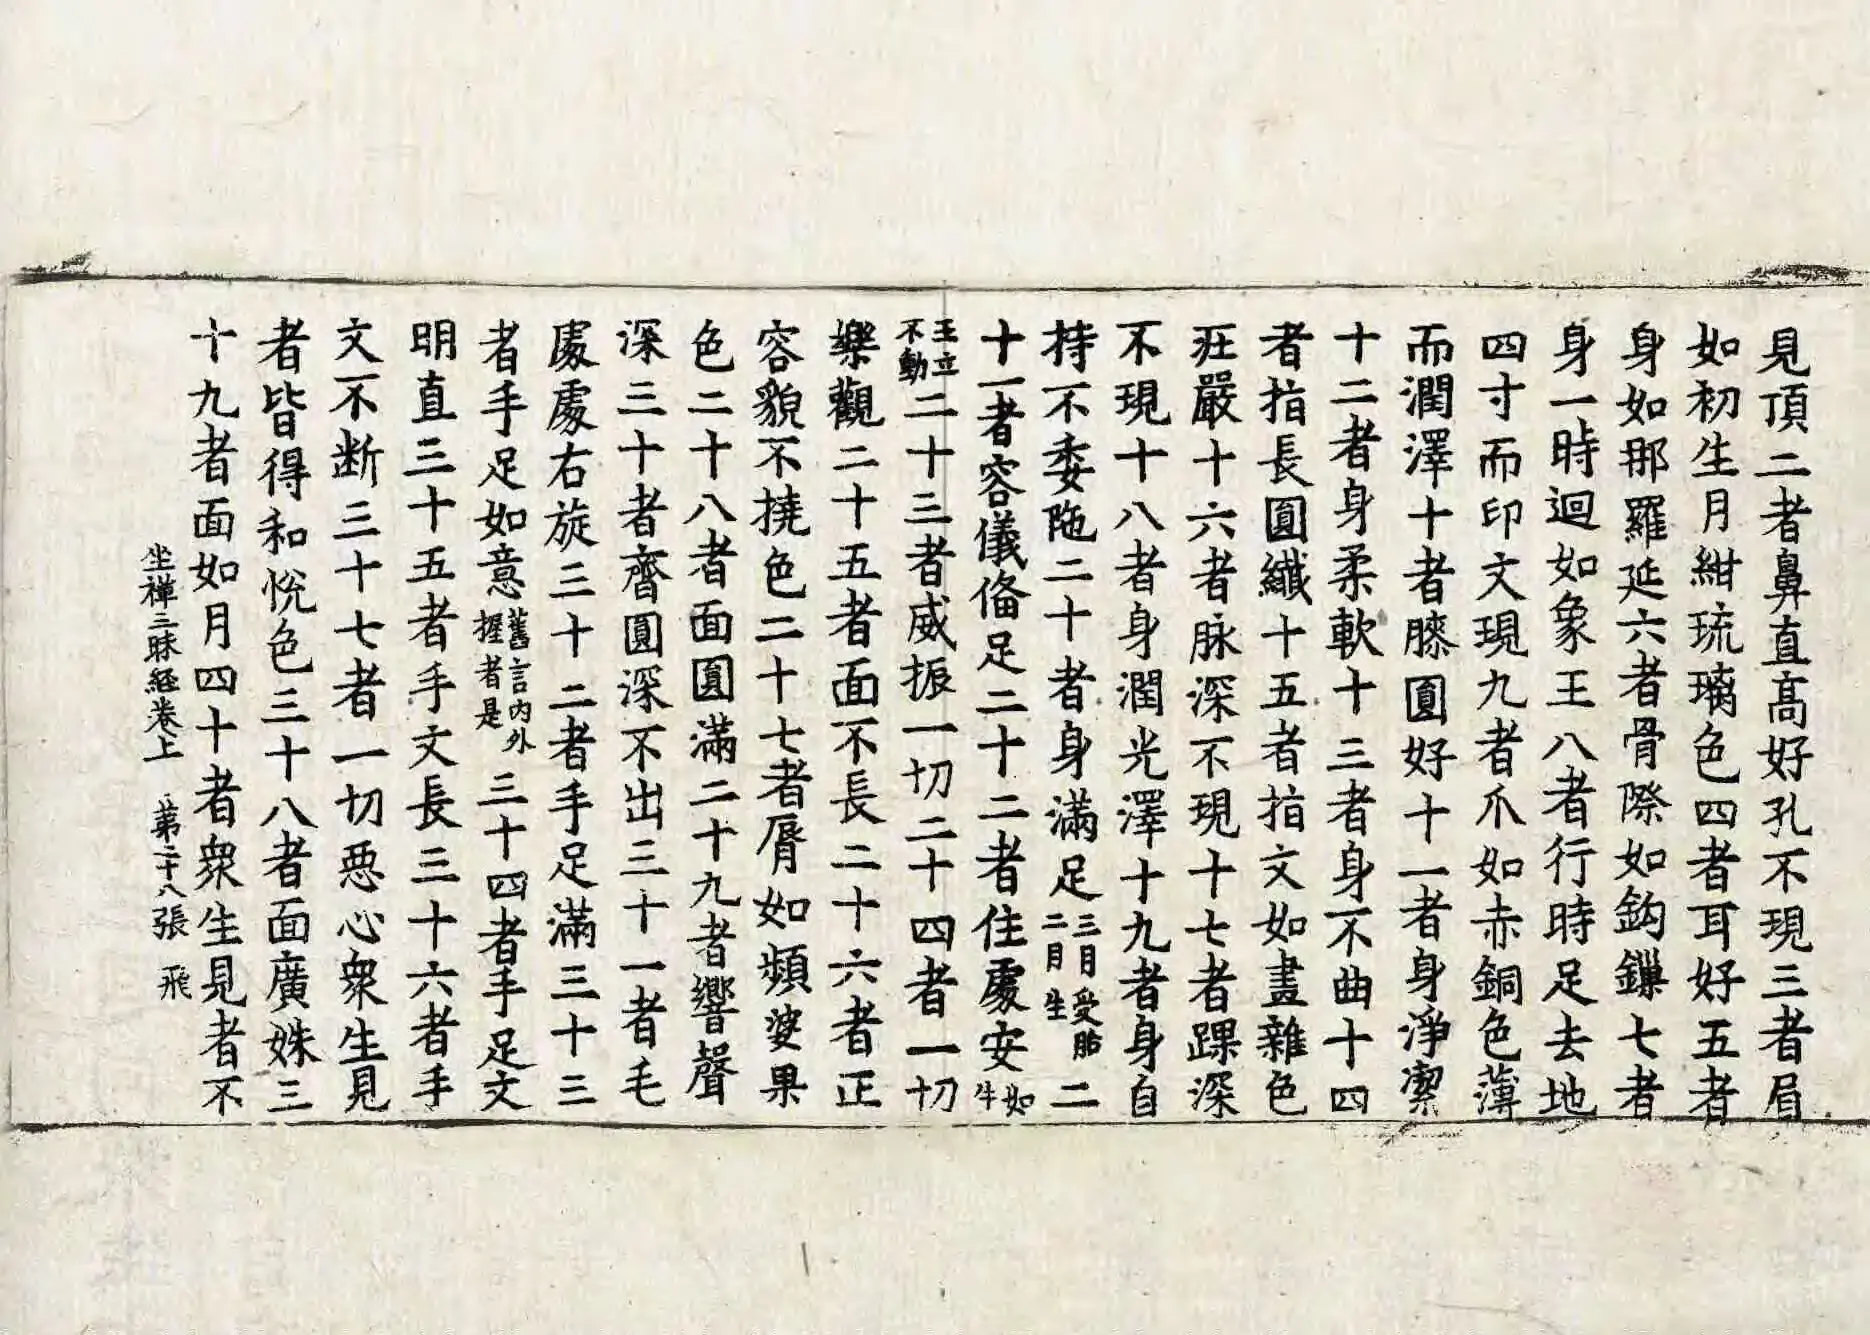 見頂二者鼻直髙好孔不現三者眉
如初生月紺琉璃色四者耳好五者
身如那羅延六者骨際如鈎鏁七者
身一時迴如象王八者行時足去地
四寸而印文現九者爪如赤銅色薄
而潤澤十者膝圓好十一者身淨潔
十二者身柔軟十三者身不曲十四
者指長圓纖十五者指文如畫雜色
莊嚴十六者脉深不現十七者踝深
不現十八者身潤光澤十九者身自
持不委陁二十者身滿足三月受胎二月生二
十一者容儀俻足二十二者住處安如牛
王立不動二十三者威振一切二十四者一切
樂觀二十五者面不長二十六者正
容貌不撓色二十七者脣如頻婆果
色二十八者面圓滿二十九者響聲
深三十者齎圓深不出三十一者毛
處處右旋三十二者手足滿三十三
者手足如意舊言內外握者是三十四者手足文
明直三十五者手文長三十六者手
文不断三十七者一切惡心衆生見
者皆得和悅色三十八者面廣姝三
十九者面如月四十者衆生見者不
坐禪三昧経卷上 第二十八張 飛